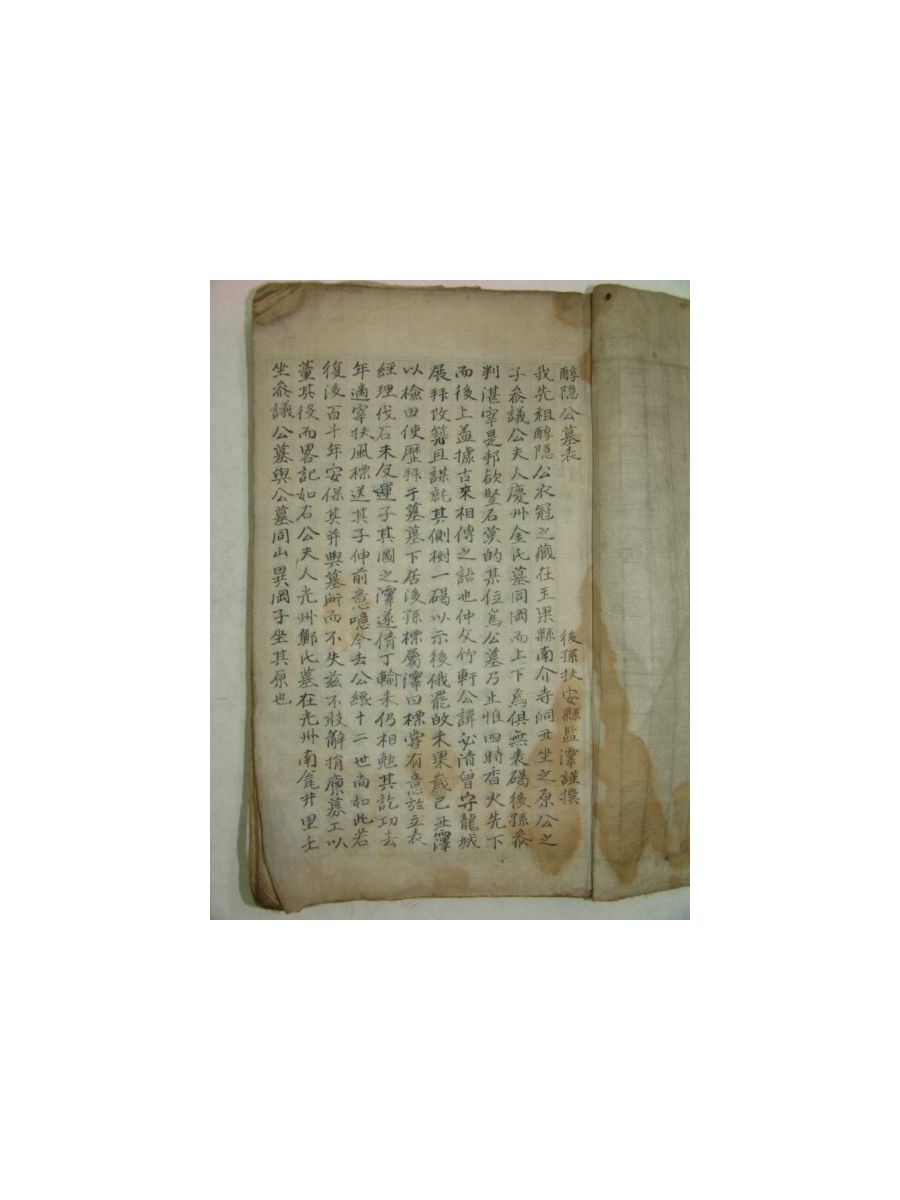 醇隠公墓表
後孫扶安縣監澤謹撰
我先祖醇隠公衣冠之藏在玉果縣南介寺洞丑坐之原公之
子叅議公夫人慶州金氏墓同岡而上下焉俱無表碣後孫叅
判湛宰是邦欲竪石莫的某位爲公墓乃止惟四時香火先下
而後上盖據古來相傳之語也仲父竹軒公諱必淸曾守龍城
展拜改築且謀就其側樹一碣以示後俄罷故未果歲己丑澤
以檢田使歷拜于墓墓下居後孫標屬澤曰標嘗有意於立表
經理伐石未及運子其圖之澤遂倩丁輸來仍相勉其訖功去
年適宰扶風標送其子伸前意噫今去公纔十二世尙如此若
復後百千年安保其并與墓所而不失玆不敢辭捐廩募工以
董其役而畧記如右公夫人光州鄭氏墓在光州南瓮井里壬
坐叅議公墓與公墓同山異岡子坐其原也